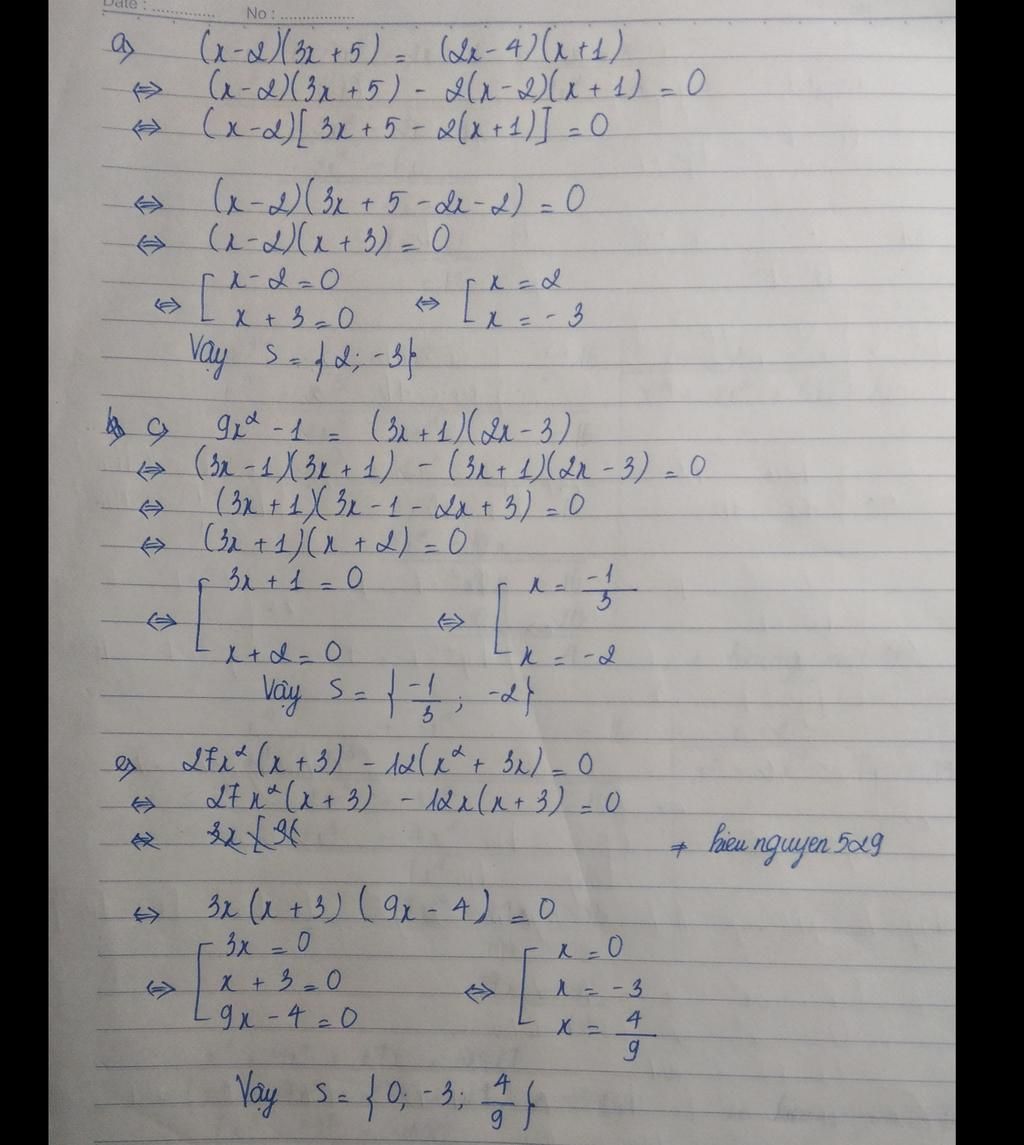 Date : ............... No : ...................
a) (x-2)(3x+5) = (2x-4)(x+1)
⇔ (x-2)(3x+5) - 2(x-2)(x+1) = 0
⇔ (x-2)[3x+5 - 2(x+1)] = 0
⇔ (x-2)(3x+5-2x-2) = 0
⇔ (x-2)(x+3) = 0
⇔ [ x-2=0 ⇔ [ x=2
x+3=0 x=-3
Vậy S = {2; -3}
c) 9x² - 1 = (3x+1)(2x-3)
⇔ (3x-1)(3x+1) - (3x+1)(2x-3) = 0
⇔ (3x+1)(3x-1-2x+3) = 0
⇔ (3x+1)(x+2) = 0
⇔ [ 3x+1=0 ⇔ [ x = -1/3
x+2=0 x = -2
Vậy S = {-1/3; -2}
e) 27x²(x+3) - 12(x²+3x) = 0
⇔ 27x²(x+3) - 12x(x+3) = 0
⇔ 3x [9x
→ hieu nguyen 529
⇔ 3x(x+3)(9x-4) = 0
⇔ [ 3x=0 ⇔ [ x=0
x+3=0 x=-3
9x-4=0 x=4/9
Vậy S = {0; -3; 4/9}